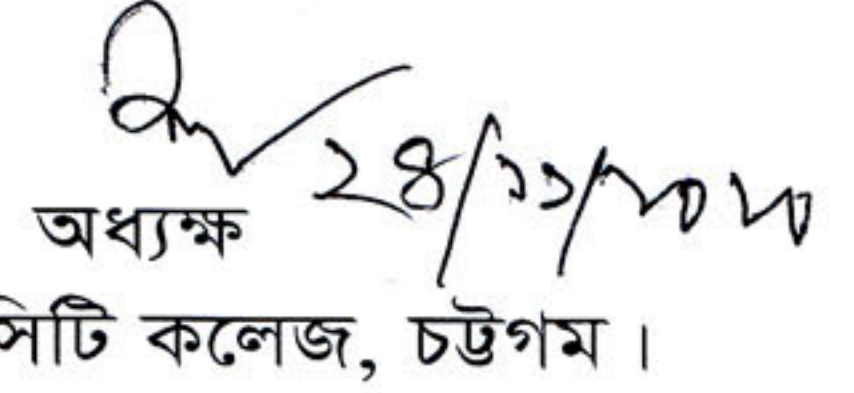 ২৪/১১/২০২০
অধ্যক্ষ
সিটি কলেজ, চট্টগম ।